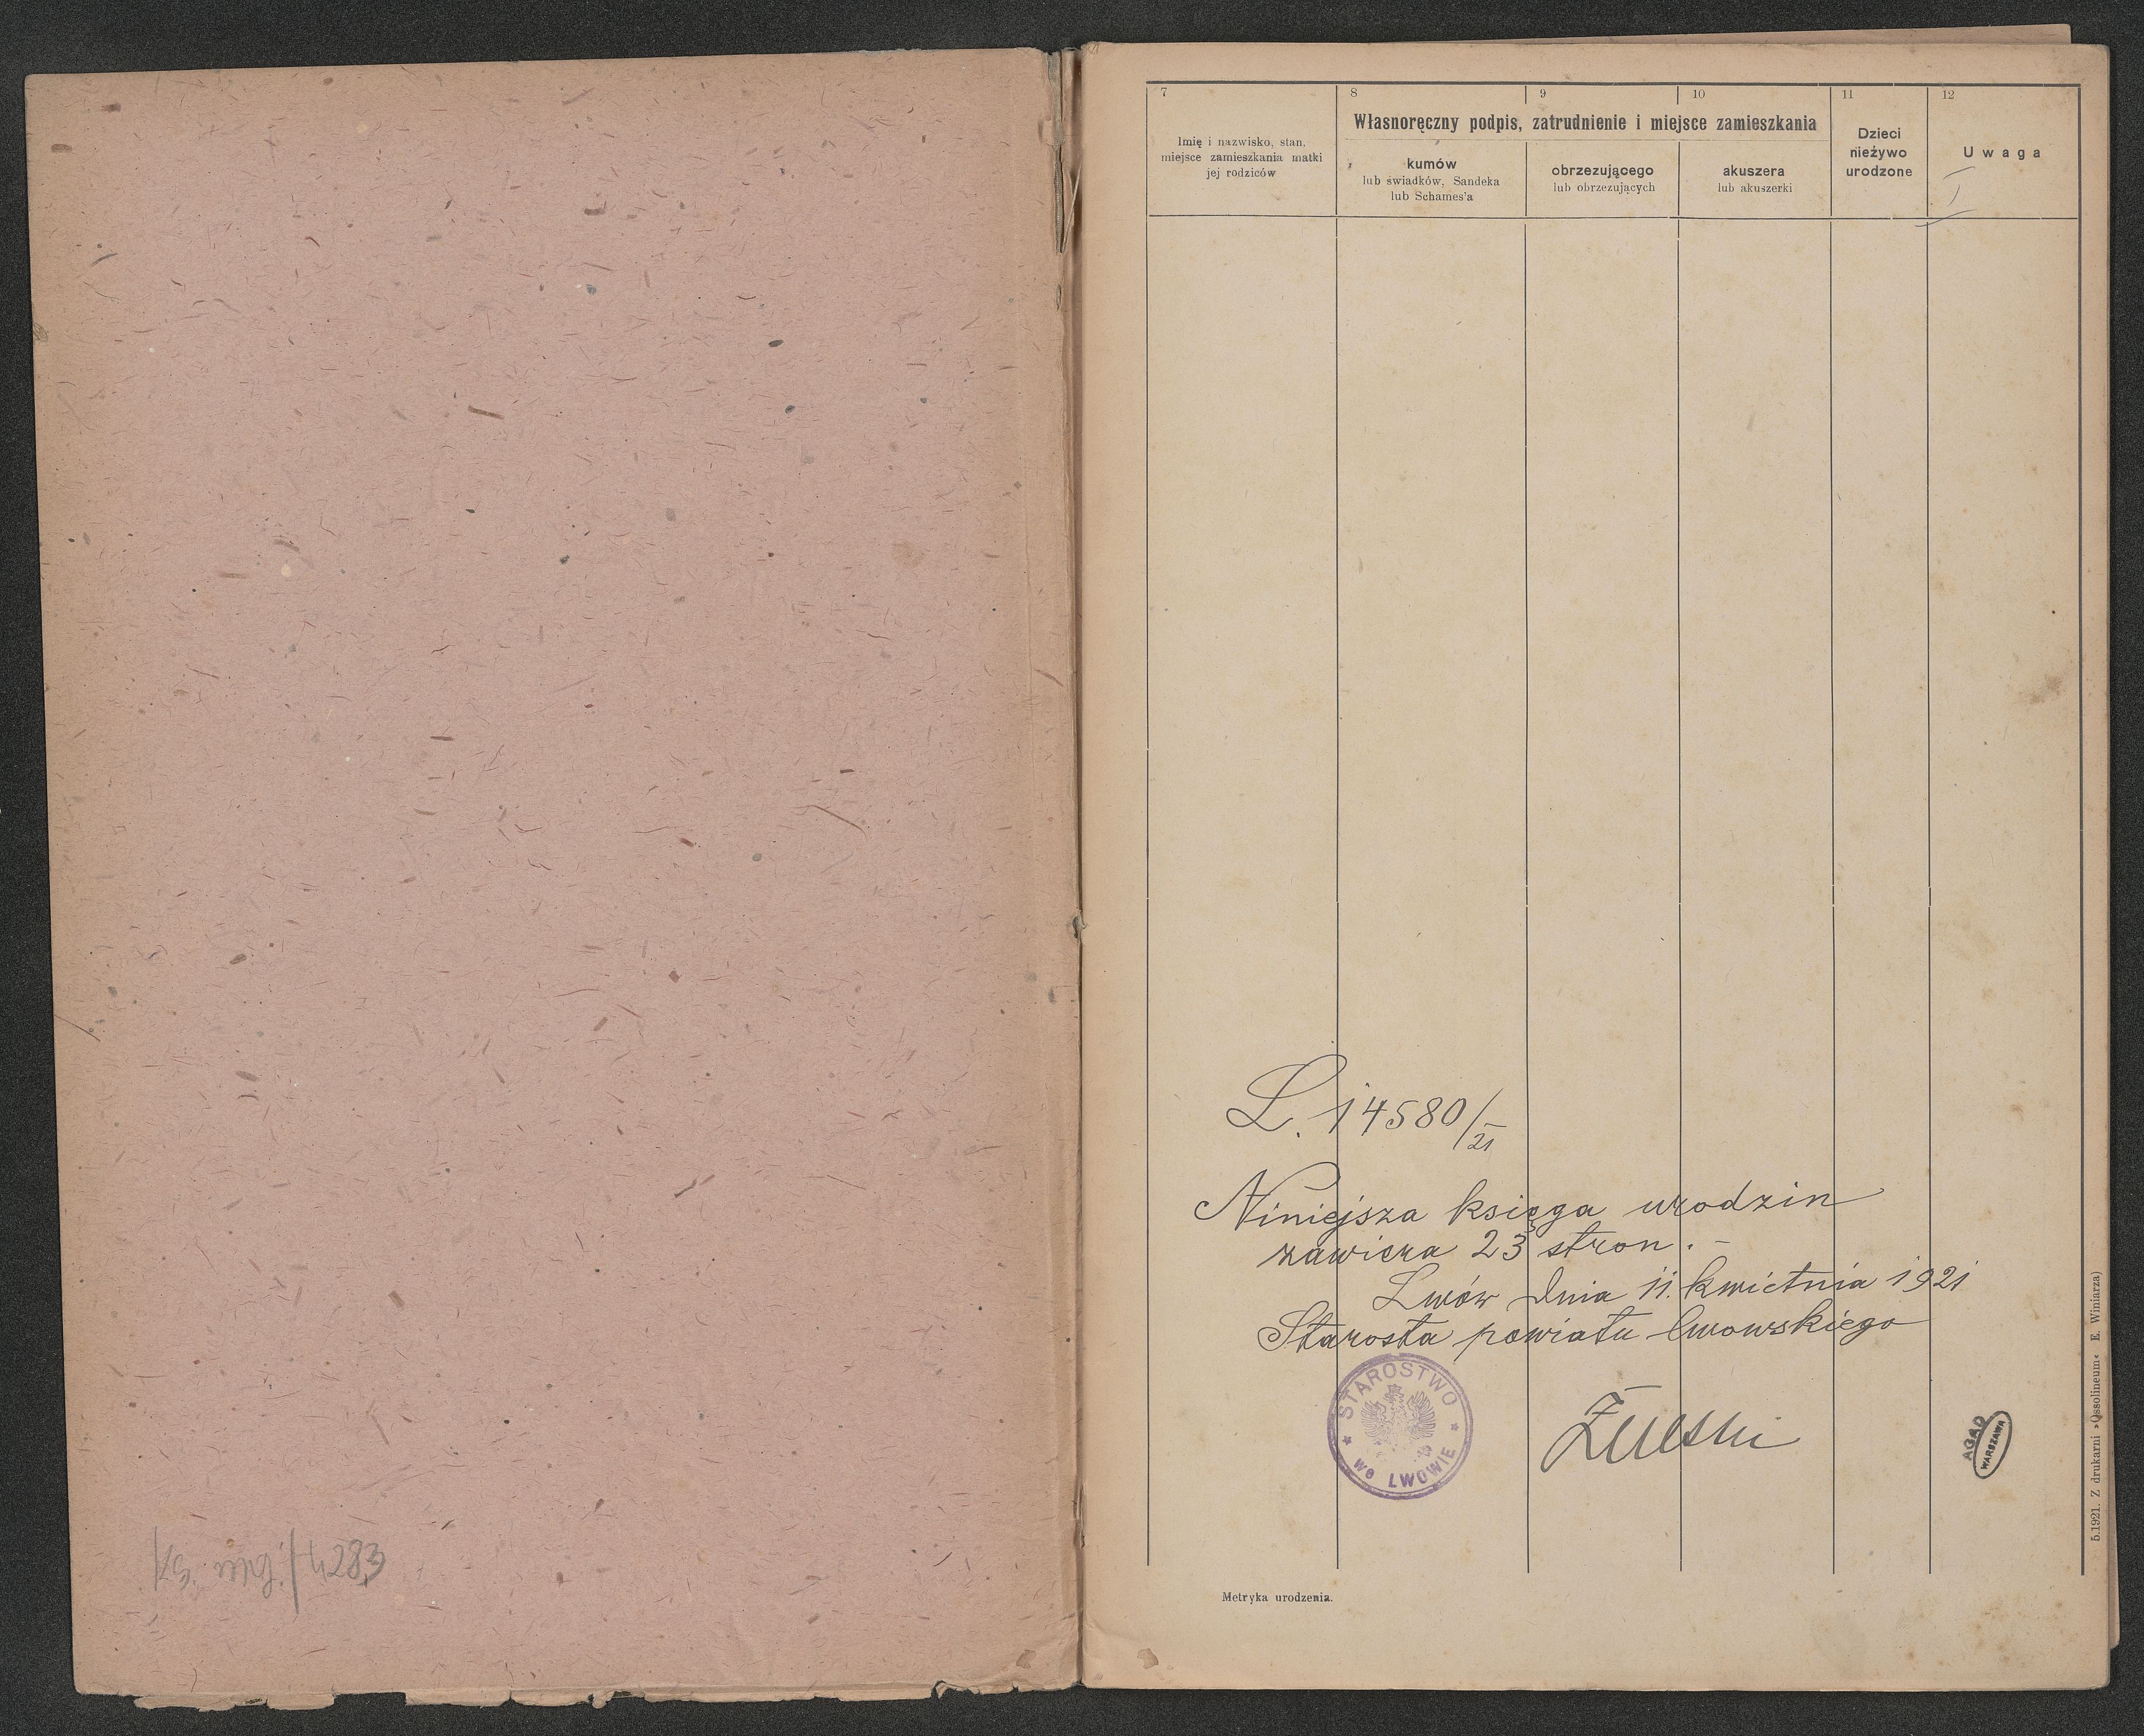 7
Imię i nazwisko, stan,
miejsce zamieszkania matki
jej rodziców
8
9
10
Własnoręczny podpis, zatrudnienie i miejsce zamieszkania
kumów
lub świadków, Sandeka
lub Schames'a
obrzezującego
lub obrzezujących
akuszera
lub akuszerki
11
Dzieci
nieżywo
urodzone
12
Uwaga
I
L. 14580/21
Niniejsza księga urodzin
zawiera 23 stron. –
Lwów dnia 11. kwietnia 1921
Starosta powiatu lwowskiego
STAROSTWO
we LWOWIE
AGAD
WARSZAWA
Metryka urodzenia.
5.1921. Z drukarni »Ossolineum« E. Winiarza)
4283